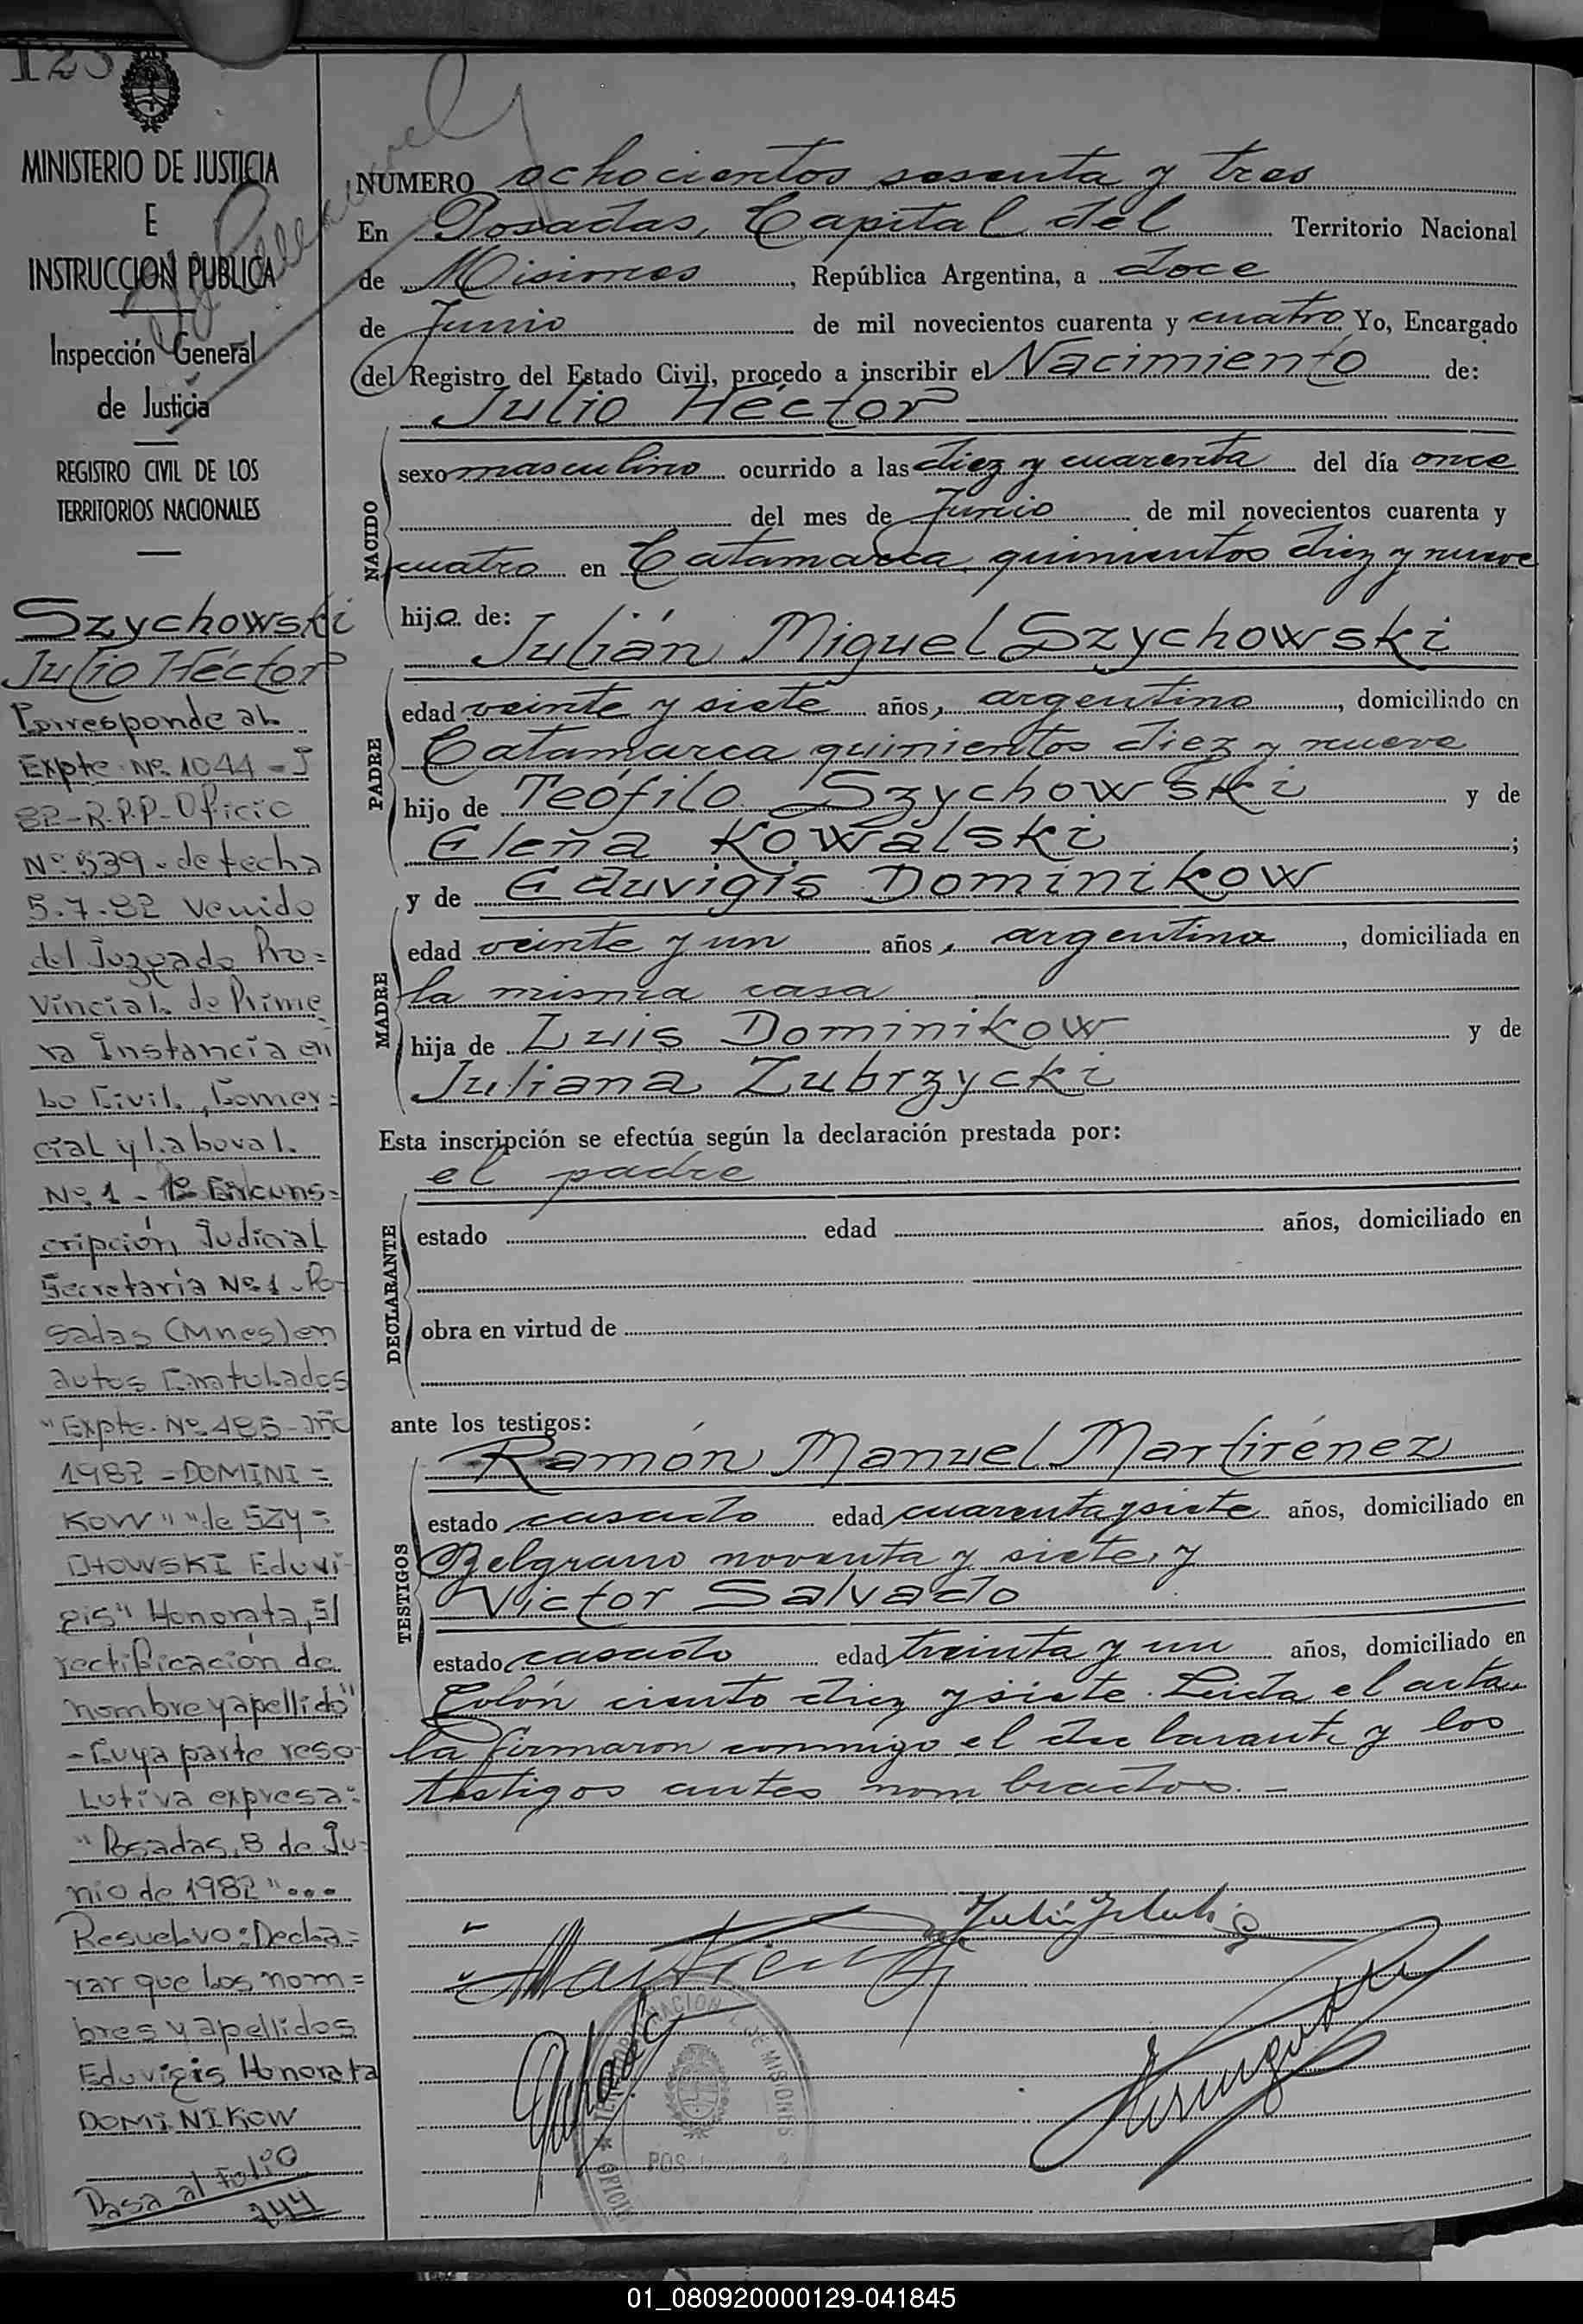 123
MINISTERIO DE JUSTICIA
E
INSTRUCCION PUBLICA
Inspección General
de Justicia
REGISTRO CIVIL DE LOS
TERRITORIOS NACIONALES
Szychowski
Julio Héctor
Corresponde al
Expte Nº 1044-J
82-R.P.P-Oficio
Nº 539-de fecha
5.7.82 venido
del Juzgado Pro=
vincial de Prime
ra Instancia en
lo Civil, Comer=
cial y laboral.
Nº 1 - 1º Circuns=
cripción Judicial
Secretaria Nº 1-Po-
sadas (Mnes) en
autos Caratulados
"Expte. Nº 485-
1982 = DOMINI =
KOW" "de SZY =
CHOWSKI Eduvi-
gis" Honorata, S/
rectificación de
nombre y apellido"
-Cuya parte reso-
lutiva expresa:
"Posadas, 8 de Ju-
nio de 1982"...
Resuelvo: Decla=
rar que los nom=
bres y apellidos
Eduvigis Honorata
DOMINIKOW
Pasa al Folio
144
NUMERO ochocientos sesenta y tres
En Posadas, Capital del Territorio Nacional
de Misiones, República Argentina, a doce
de Junio de mil novecientos cuarenta y cuatro Yo, Encargado
del Registro del Estado Civil, procedo a inscribir el Nacimiento de:
Julio Héctor
NACIDO
sexo masculino ocurrido a las diez y cuarenta del día once
del mes de Junio de mil novecientos cuarenta y
cuatro en Catamarca quinientos diez y nueve
hijo de:
Julián Miguel Szychowski
PADRE
edad veinte y siete años, argentino, domiciliado en
Catamarca quinientos diez y nueve
hijo de Teófilo Szychowski y de
Elena Kowalski;
y de Eduvigis Dominikow
MADRE
edad veinte y un años, argentina, domiciliada en
la misma casa
hija de Luis Dominikow y de
Juliana Zubrzycki
Esta inscripción se efectúa según la declaración prestada por:
el padre
DECLARANTE
estado edad años, domiciliado en
obra en virtud de
ante los testigos:
Ramón Manuel Martirénez
TESTIGOS
estado casado edad cuarenta y siete años, domiciliado en
Belgrano noventa y siete, y
Victor Salvado
estado casado edad treinta y un años, domiciliado en
Colón ciento diez y siete. Leída el acta
la firmaron conmigo el declarante y los
testigos antes nombrados.-
01_080920000129-041845